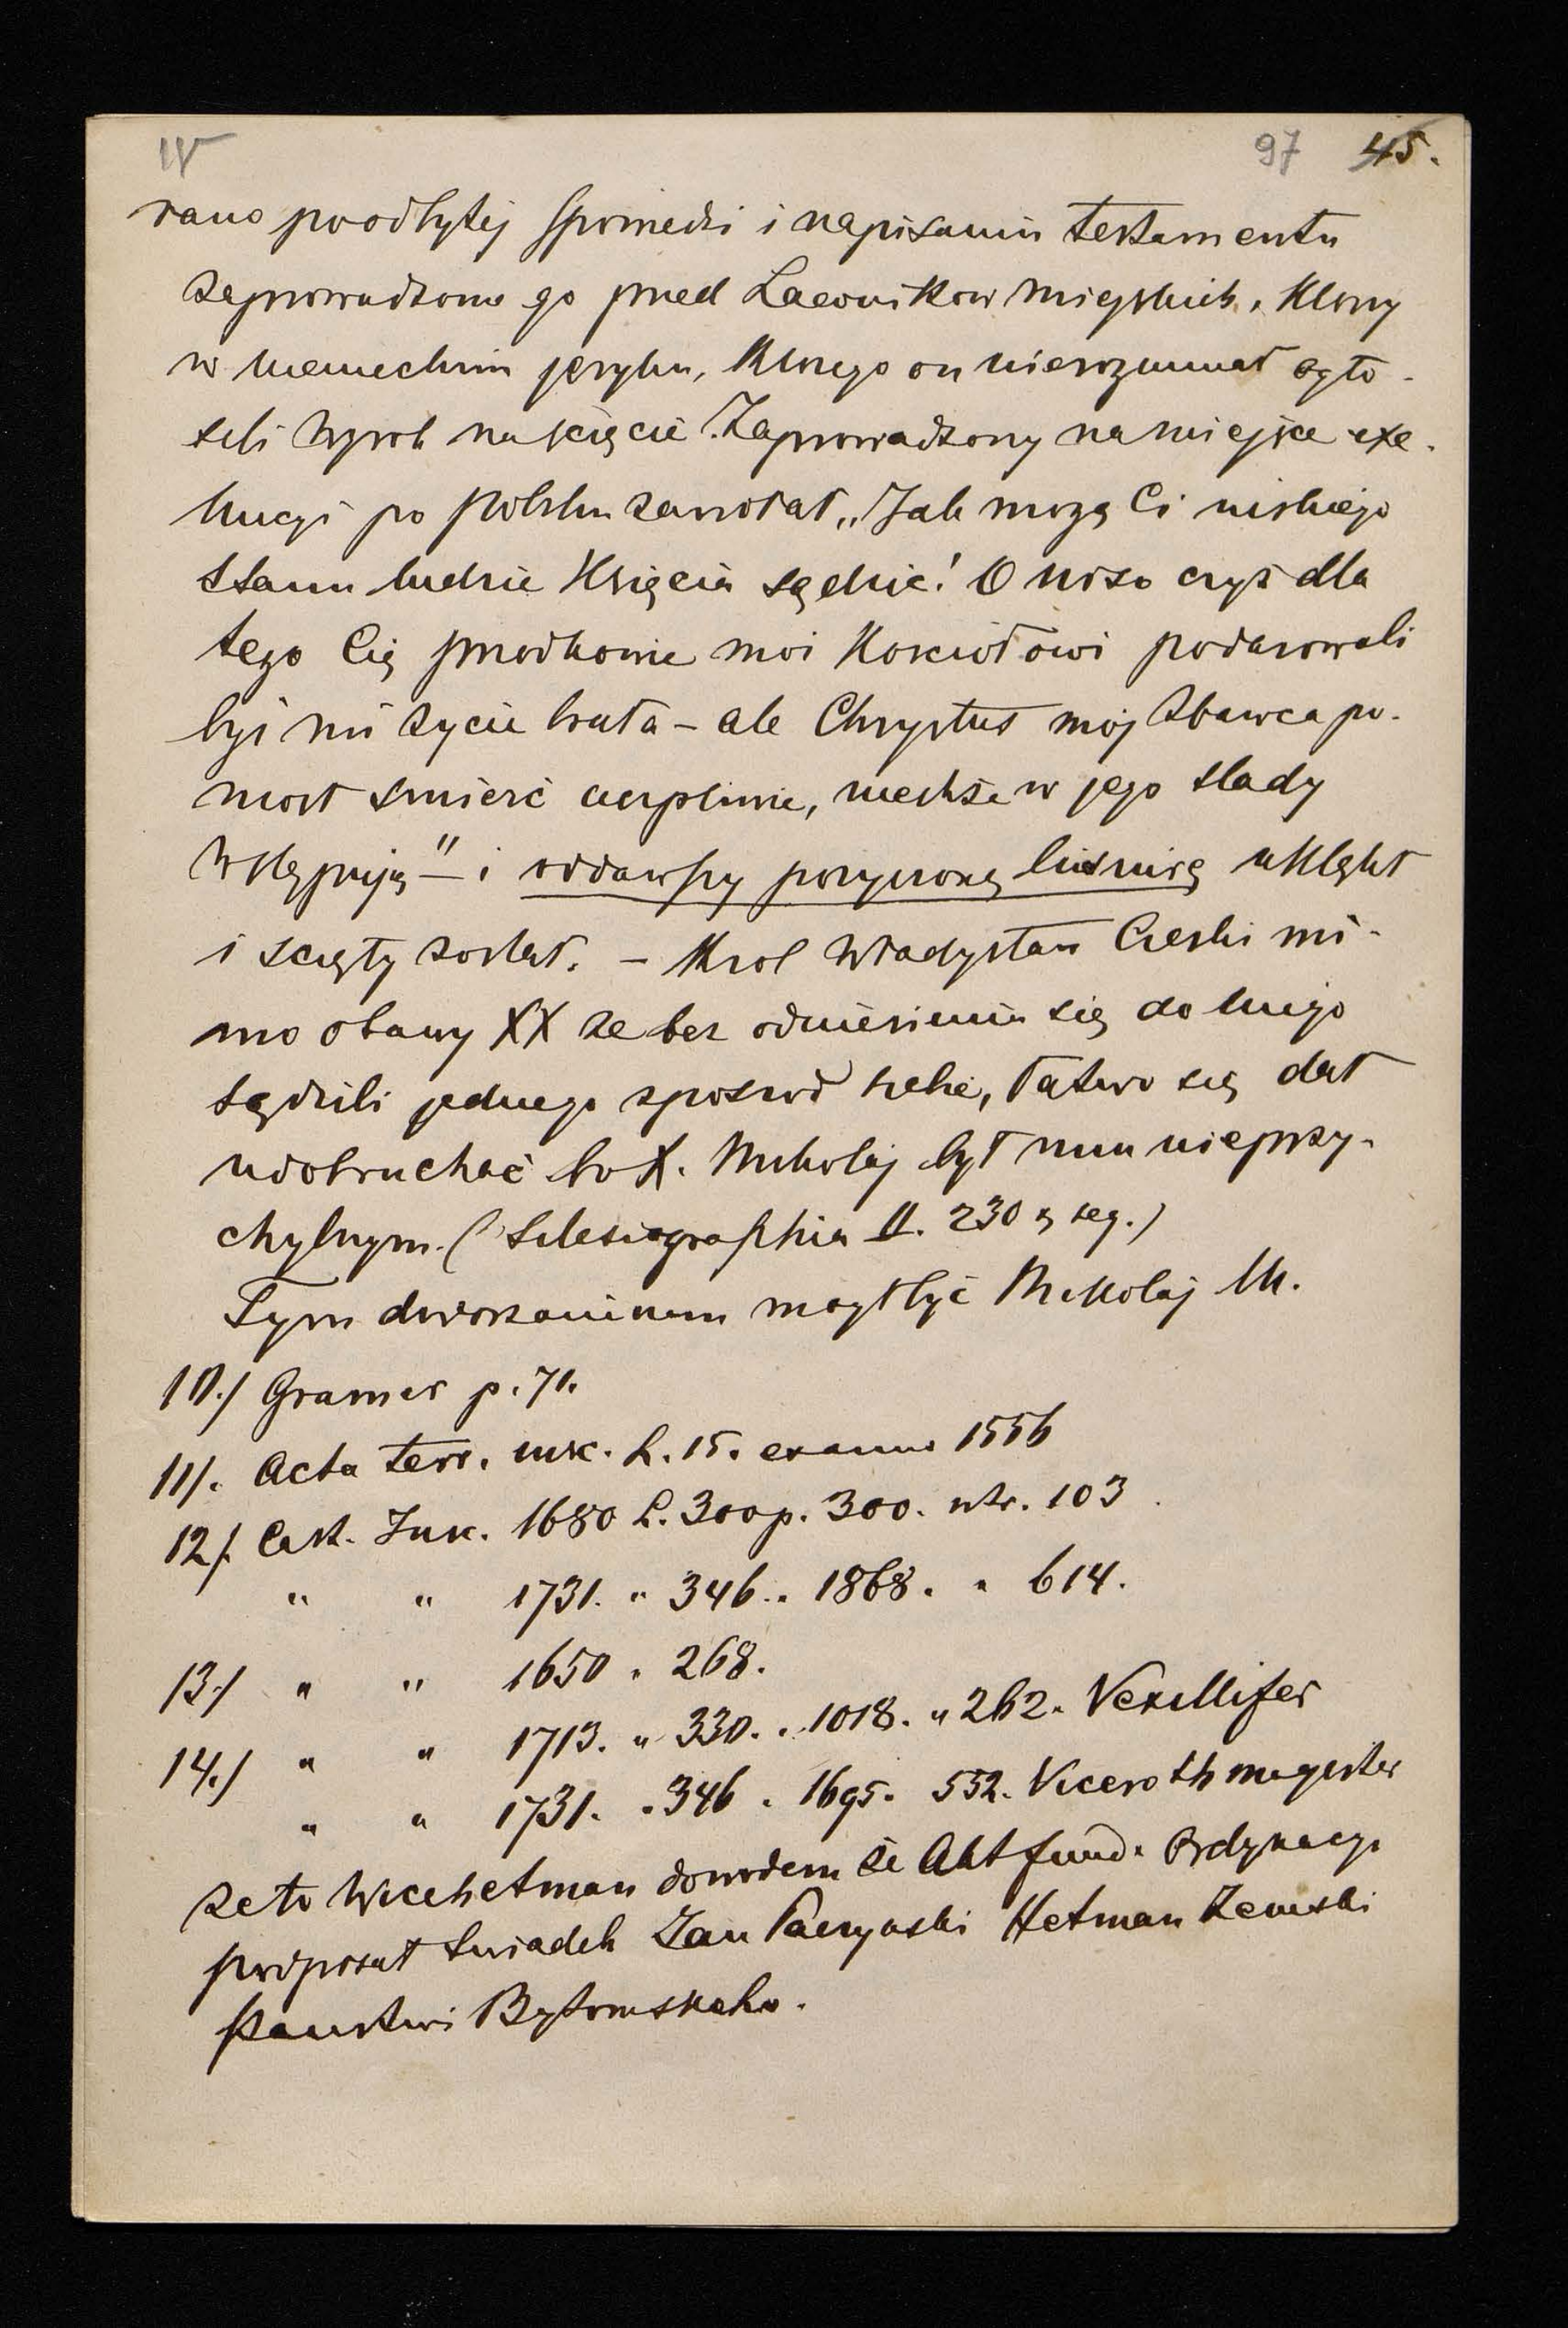 IV 97 45.
rano po odbytej spowiedzi i napisaniu testamentu
zaprowadzono go pred Lawnikow miejskich, ktory
w niemieckim języku, ktorego on nierozumiał ogło-
sili wyrok na ścięcie. Zaprowadzony na miejsce exe-
kucyi po polsku zawołał „Jak mogą Ci niskiego
stanu ludzie Księcia sądzić! O niso czyś dla
tego Cię przodkowie moi Kosciołowi podarowali
byś mi życie brała – ale Chrystus mój Zbawca po-
niosł smierć cierpliwie, niechże w jego slady
wstępuję" – i oddawszy pożyczoną liusnirę uklękł
i scięty został. – Krol Władysław Czeski mi-
mo obawy XX ze bez odniesienia się do niego
sądzili jednego zposrod siebie, łatwo się dał
udobruchać bo X. Mikolaj był mu nieprzy-
chylnym. (Silesiographia II. 230 & seg.)
Tym dworzaninem mogł być Mikolaj M.
10./ Gramer p. 71.
11/. Acta terr. L. 15. ex anno 1556
12/. Cast. Jun. 1680 L. 300 p. 300. ntr. 103
" " 1731. " 346. " 1868. " 614.
13./ " " 1650 " 268.
14./ " " 1713. " 330. " 1018. " 262. Vexillifer
" " 1731. " 346 " 1695. 552. Vicerothmagister
ze to Wicehetman dowodem że Akt fund. Ordynacyi
podpisał swiadek Jan Paczynski Hetman Zemski
Panstwi Bytomskeho.